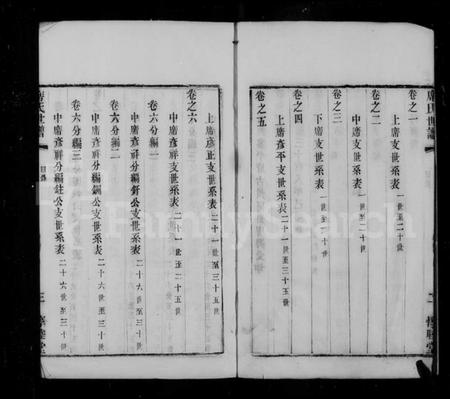 席氏世譜
卷之一
上席支世系表 一世至二十世
卷之二
中席支世系表 一世至二十世
卷之三
下席支世系表 一世至二十世
卷之四
上席彥平支世系表 二十一世至三十五世
卷之五
上席彥正支世系表 二十一世至三十五世
卷之六
中席彥祥支世系表 二十一世至二十五世
卷六分編一
中席彥祥分編公支世系表 二十六世至三十世
卷六分編二
中席彥祥分編銅公支世系表 二十六世至三十世
卷六分編三
中席彥祥分編公支世系表 二十六世至三十世
席氏世譜 目錄 三
FamilySearch